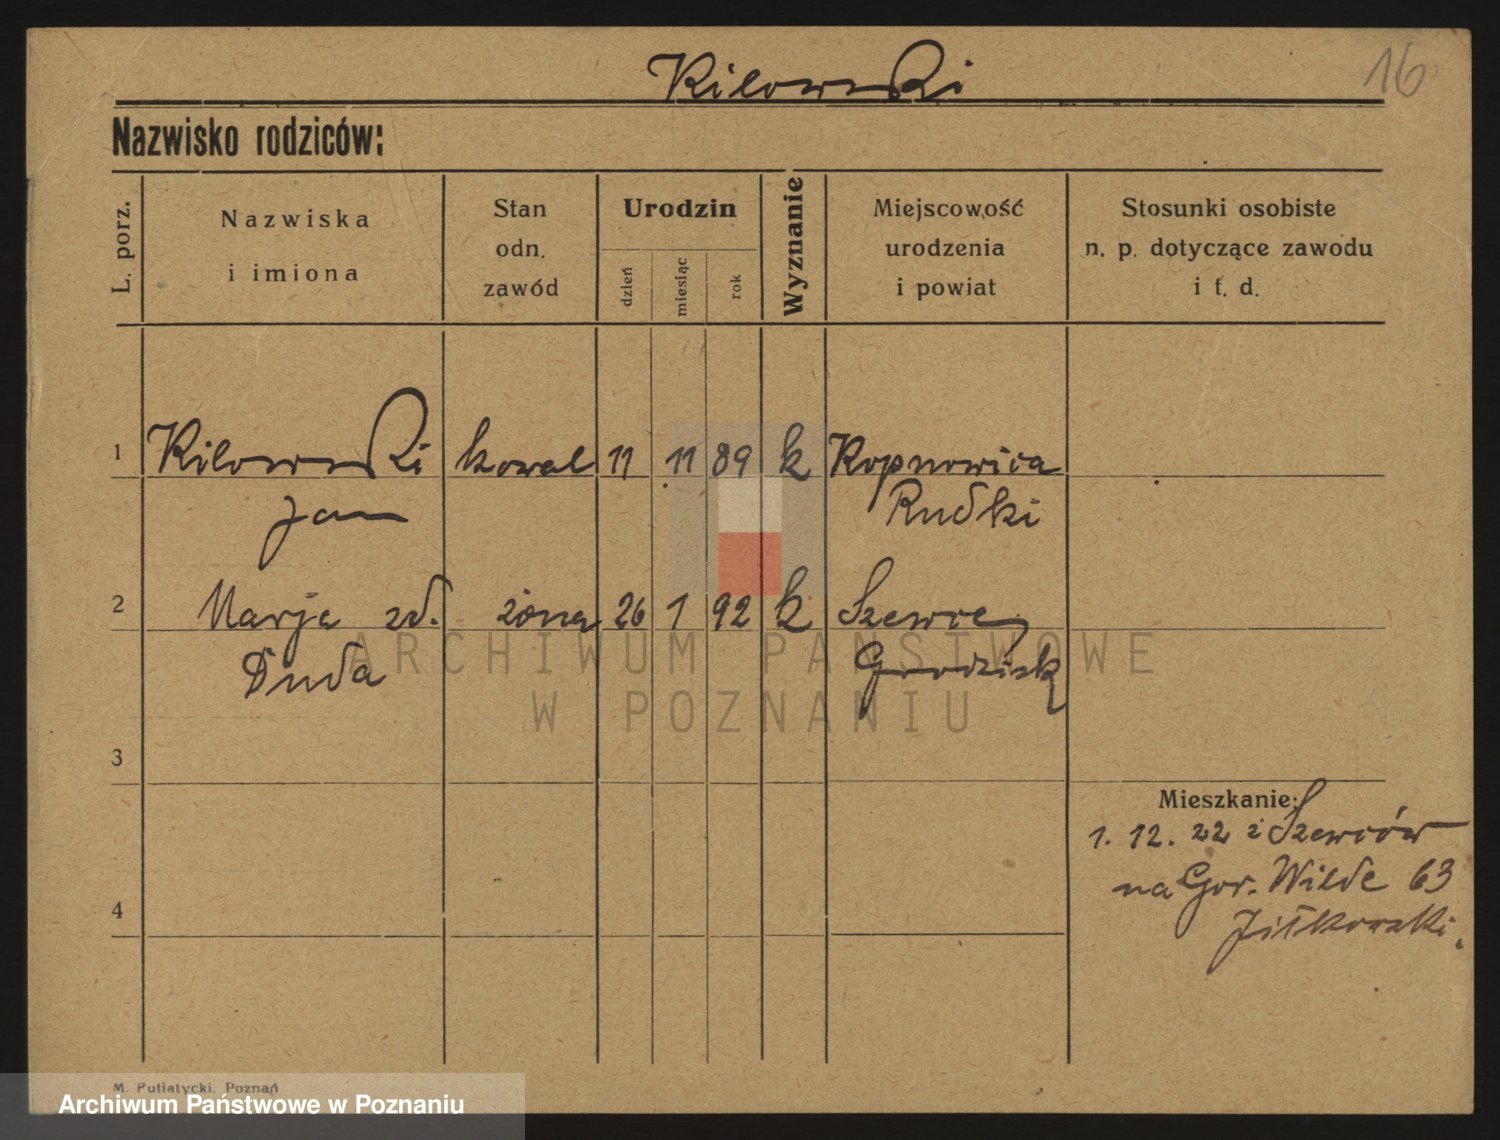 Kilowski
16
Nazwisko rodziców:
L. porz.
Nazwiska
i imiona
Stan
odn.
zawód
Urodzin
dzień
miesiąc
rok
Wyznanie
Miejscowość
urodzenia
i powiat
Stosunki osobiste
n. p. dotyczące zawodu
i t. d.
1 Kilowski kowal 11 11 89 k Kopnowica
Jan Rudki
2 Marja zd. żona 26 1 92 k Szewce
Duda Grodzisk
ARCHIWUM PAŃSTWOWE
W POZNANIU
3
Mieszkanie:
1. 12. 22 z Szewców
na Gor. Wilde 63
4
M. Putiatycki, Poznań
Archiwum Państwowe w Poznaniu